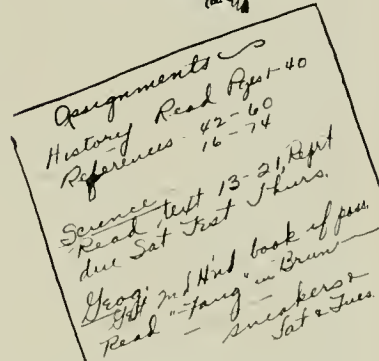 Assignments
History Read Pges 1-40
References 42-60
16-74
Science
Read text 13-21, Reprt
due Sat Test Thurs.
Geog.
Get 2nd H'nd book if poss.
Read "-Fang" in Brum
sneakers
Sat & Tues.